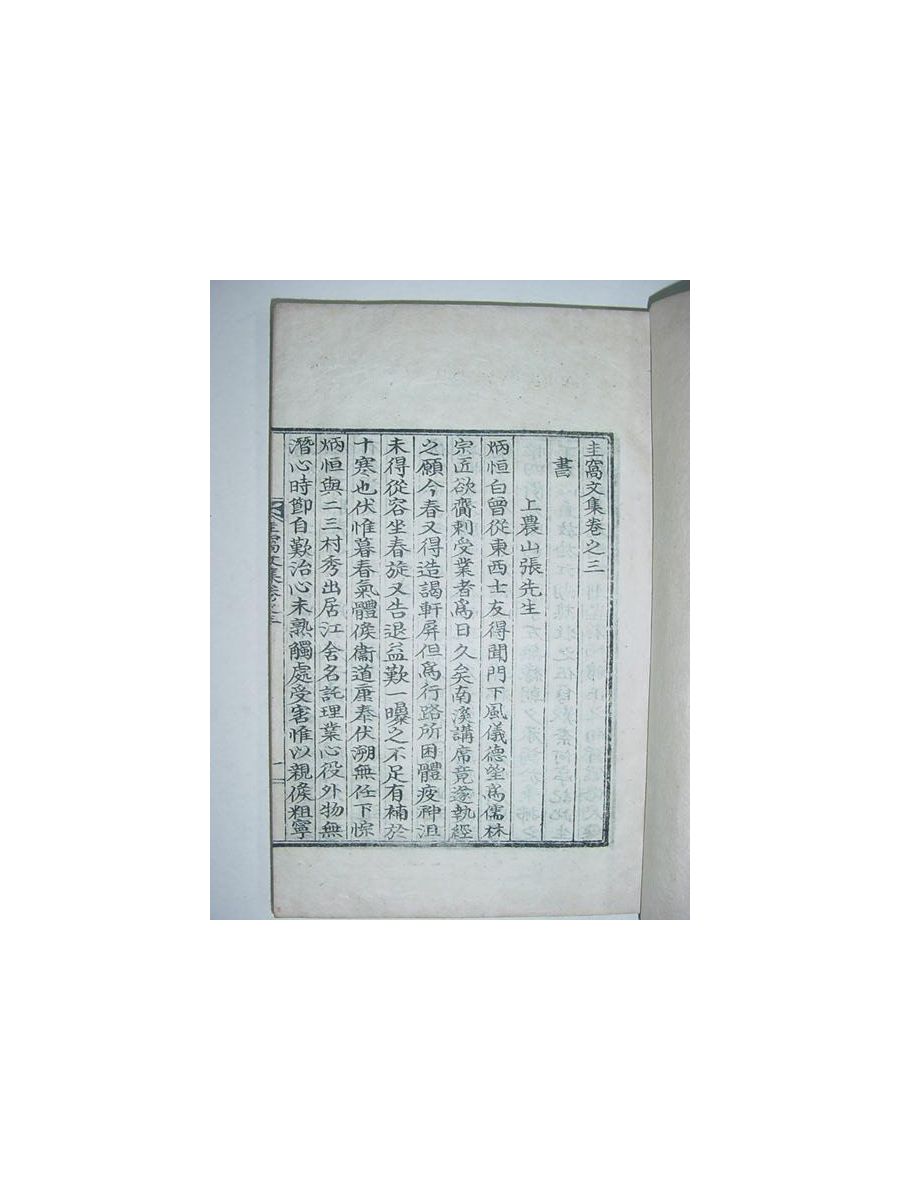 圭窩文集卷之三
書
上農山張先生
炳恒白曾從東西士友得聞門下風儀德望爲儒林
宗匠欲齎刺受業者爲日久矣南溪講席竟遂執經
之願今春又得造謁軒屛但爲行路所困體疲神沮
未得從容坐春旋又告退益歎一曝之不足有補於
十寒也伏惟暮春氣體候衞道康奉伏溯無任下悰
炳恒與二三村秀出居江舍名託理業心役外物無
潛心時節自歎治心未熟觸處受害惟以親候粗寧
圭窩文集卷之三
一